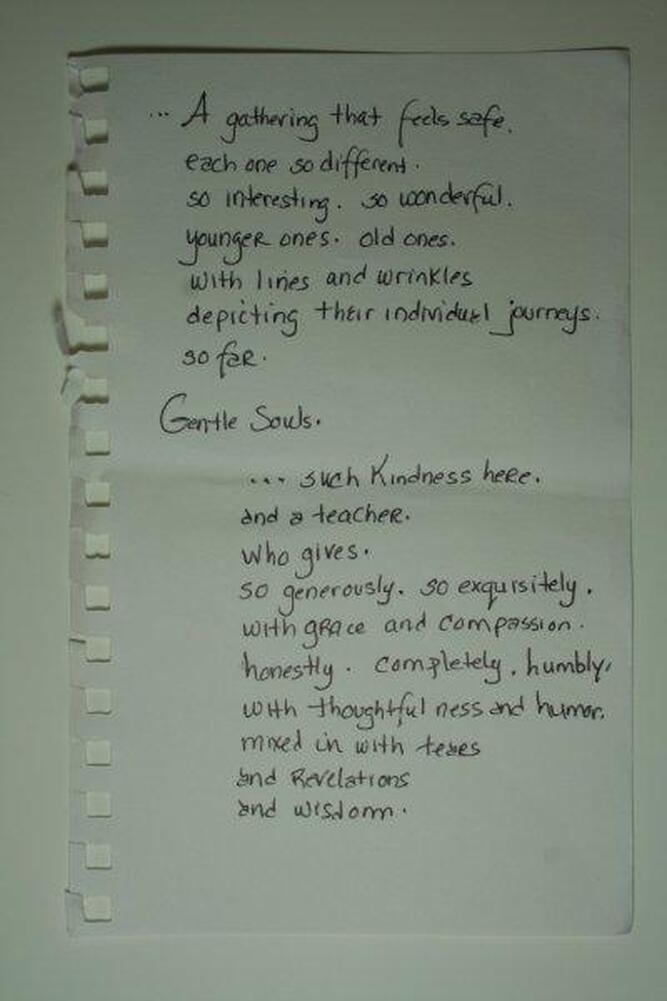 ... A gathering that feels safe.
each one so different.
so interesting. so wonderful.
younger ones. old ones.
with lines and wrinkles
depicting their individual journeys.
so far.
Gentle Souls.
... such Kindness here.
and a teacher.
who gives.
so generously. so exquisitely.
with grace and compassion.
honestly. completely. humbly.
with thoughtful ness and humor.
mixed in with tears
and Revelations
and wisdom.